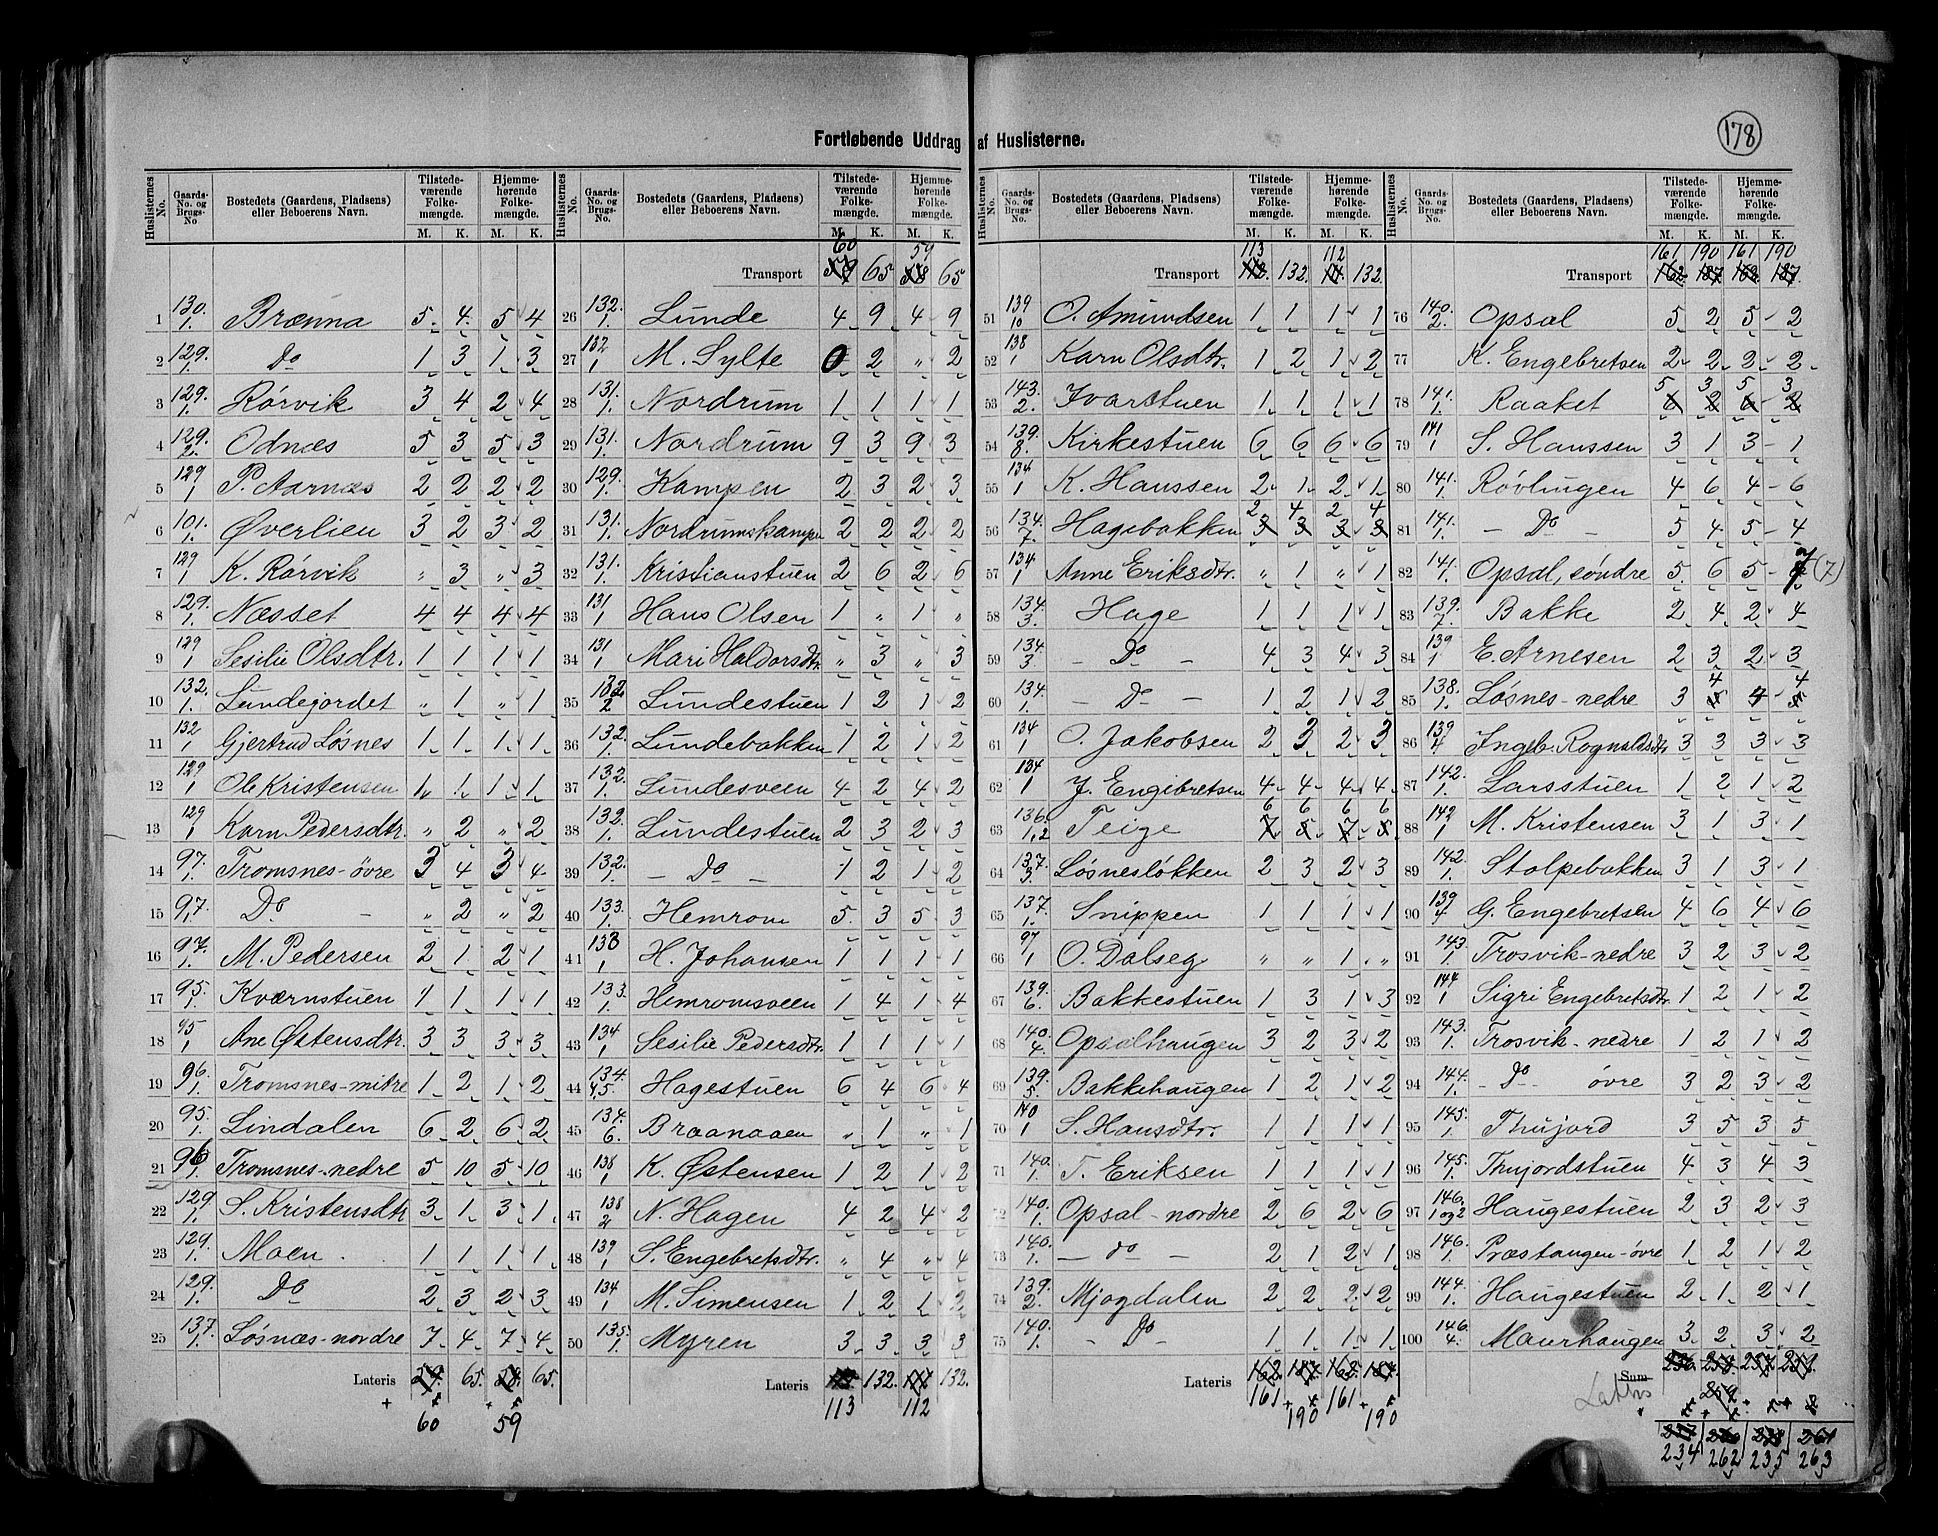 Fortløbende Uddrag af Huslisterne.
178
Huslisternes No. | Gaards-No. og Brugs-No | Bostedets (Gaardens, Pladsens) eller Beboerens Navn. | Tilstedeværende Folkemængde. M. K. | Hjemmehørende Folkemængde. M. K.
1 130./1. Brænna 5 4 5 4
2 129./1. Do 1 3 1 3
3 129./1. Rörvik 3 4 2 4
4 129./2. Odnæs 5 3 5 3
5 129/1 P. Aarnæs 2 2 2 2
6 101./1. Øverlien 3 2 3 2
7 129/1 K. Rörvik " 3 " 3
8 129./1. Næsset 4 4 4 4
9 129/1 Sesilie Olsdtr. 1 1 1 1
10 132./1. Lundejordet " 1 " 1
11 132/1 Gjertrud Løsnes 1 1 1 1
12 129/1 Ole Kristensen 1 1 1 1
13 129/1 Karn Pedersdtr. " 2 " 2
14 97./1. Tromsnes-övre 3 4 3 4
15 97./1. Do - " 2 " 2
16 97./1. M. Pedersen 2 1 2 1
17 95./1. Kværnstuen 1 1 1 1
18 95/1 Ane Østensdtr. 3 3 3 3
19 96./1. Tromsnes-mitre 1 2 1 2
20 95./1. Lindalen 6 2 6 2
21 96/1. Tromsnes-nedre 5 10 5 10
22 129./1. S. Kristensdtr 3 1 3 1
23 129./1. Moen 1 1 1 1
24 129./1. Do 2 3 2 3
25 137./1. Løsnæs-nordre 7 4 7 4
Lateris 65. 65.
60 59
60 59
Transport 65 65
26 132./1. Lunde 4 9 4 9
27 132/1 M. Sylte 0 2 " 2
28 131./1. Nordrum 1 1 1 1
29 131./1. Nordrum 9 3 9 3
30 129./1. Kampen 2 3 2 3
31 131./1. Nordrumskampen 2 2 2 2
32 131./1. Kristianstuen 2 6 2 6
33 131/1 Hans Olsen 1 " 1 "
34 131/1 Mari Haldorsdtr. " 3 " 3
35 132/2 Lundestuen 1 2 1 2
36 132./1. Lundebakken 1 2 1 2
37 132./1. Lundesveen 4 2 4 2
38 132./1. Lundestuen 2 3 2 3
39 132./1. - Do - 1 2 1 2
40 133./1. Hemrom 5 3 5 3
41 133/1 H. Johansen 1 1 1 1
42 133./1. Hemromsveen 1 4 1 4
43 134/1 Sesilie Pedersdtr. 1 1 1 1
44 134./4,5. Hagestuen 6 4 6 4
45 134./6. Braanaaen " 1 " 1
46 138/1 K. Østensen 1 2 1 2
47 138/2 N. Hagen 4 2 4 2
48 139/1 S. Engebretsdtr. " 4 " 4
49 134/1 M. Simensen 1 2 1 2
50 135./1. Myren 3 3 3 3
Lateris 132. 132.
113 112
113 112
Transport 132. 132.
51 139/10 O. Amundsen 1 1 1 1
52 138/1 Karn Olsdtr. 1 2 1 2
53 143./2. Ivarstuen 1 1 1 1
54 139./8. Kirkestuen 6 6 6 6
55 134/1 K. Hanssen 2 1 2 1
56 134./7. Hagebakken 2 4 2 4
57 134/1 Anne Eriksdtr. " 1 " 1
58 134./3. Hage 1 1 1 1
59 134./3. - Do - 4 3 4 3
60 134./1. - Do - 1 2 1 2
61 134/1 O. Jakobsen 2 3 2 3
62 134/1 J. Engebretsen 4 4 4 4
63 136./1,2 Teige 6 6 6 6
64 137./3. Løsnesløkken 2 3 2 3
65 137./1. Snippen 1 1 1 1
66 97/1 O. Dalseg " " 1 "
67 139./6. Bakkestuen 1 3 1 3
68 140./4. Opsalhaugen 3 2 3 2
69 139./5. Bakkehaugen 1 2 1 2
70 140/1 S. Hansdtr. 1 1 1 1
71 140./1. T. Eriksen 1 1 1 1
72 140./1. Opsal-nordre 2 6 2 6
73 140./1. - do - 2 1 2 1
74 139./2. Mjogdalen 2 2 2 2
75 140./1. - Do - 1 1 1 1
Lateris 162 187. 162. 187.
161 190 161 190
161 190 161 190
Transport 162. 187 162. 187.
76 140./2. Opsal 5 2 5 2
77 K. Engebretsen 2 2 2 2
78 141./1. Raaket 5 3 5 3
79 141/1 S. Hanssen 3 1 3 1
80 141./1. Rövlingen 4 6 4 6
81 141./1. - Do - 5 4 5 4
82 141./1. Opsal, söndre 5 6 5 7 (7)
83 139./7. Bakke 2 4 2 4
84 139/1 E. Arnesen 2 3 2 3
85 138./1. Løsnes-nedre 3 4 4 4
86 139/4 Ingeb. Rognaldsdtr 3 3 3 3
87 142./1. Larsstuen 1 2 1 2
88 142/1 M. Kristensen 3 1 3 1
89 142./1. Stolpebakken 3 1 3 1
90 139/4 G. Engebretsen 4 6 4 6
91 143./1. Trosvik-nedre 3 2 3 2
92 144/1 Sigri Engebretsdtr. 1 2 1 2
93 143./1. Trosvik-nedre 1 2 1 2
94 144./1. - Do - övre 3 2 3 2
95 145./1. Thujord 3 5 3 5
96 145./1. Thujordstuen 4 3 4 3
97 146./1 og 2 Haugestuen 2 3 2 3
98 146./1. Præstangen-övre 1 2 1 2
99 144./1. Haugestuen 2 1 2 1
100 146./4. Maurhaugen 3 2 3 2
Sum
Lateris
234 262 235 263